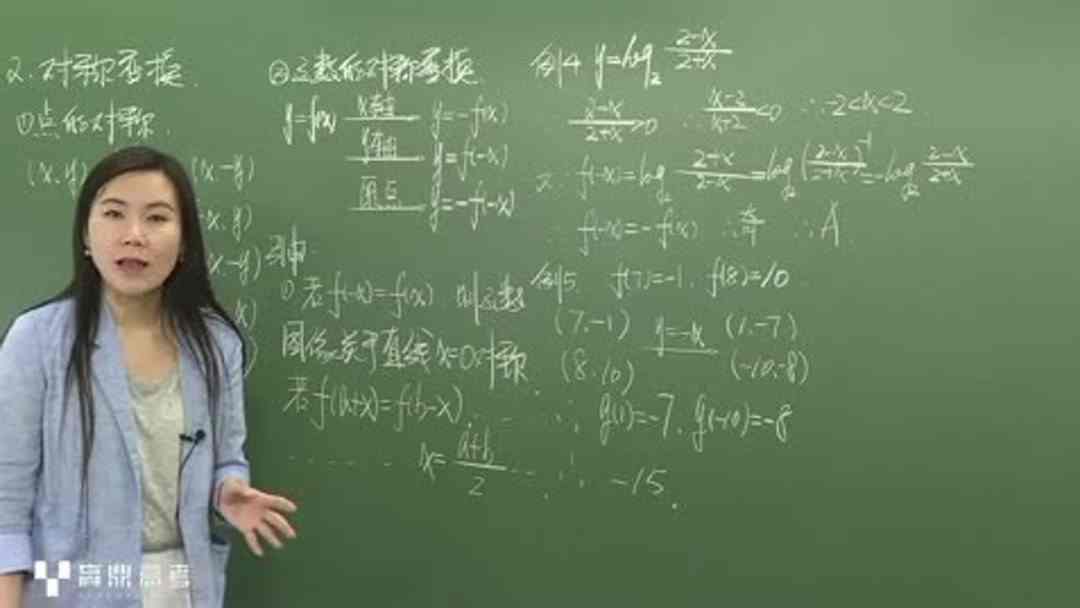 2.对称变换.
①点的对称.
(x.y)
(x.-y)
-x.y)
x.-y)
②函数的对称变换.
y=f(x) x轴 y=-f(x)
y轴 y=f(-x)
原点 y=-f(-x)
①若f(-x)=f(x) 则函数
图像关于直线x=0对称
若f(a+x)=f(b-x)
x=\frac{a+b}{2}
例4 y=log₂\frac{2-x}{2+x}
\frac{2-x}{2+x}>0 ∴\frac{x-2}{x+2}<0 ∴-2<x<2
又∵ f(-x)=log₂\frac{2+x}{2-x}=log₂(\frac{2-x}{2+x})⁻¹=-log₂\frac{2-x}{2+x}
∴ f(-x)=-f(x) ∴奇 ∴A.
例5. f(7)=-1. f(8)=10
(7.-1) y=-x (1.-7)
(8.10) (-10.-8)
∴ g(1)=-7. g(-10)=-8
∴ -15.
高鼎高考